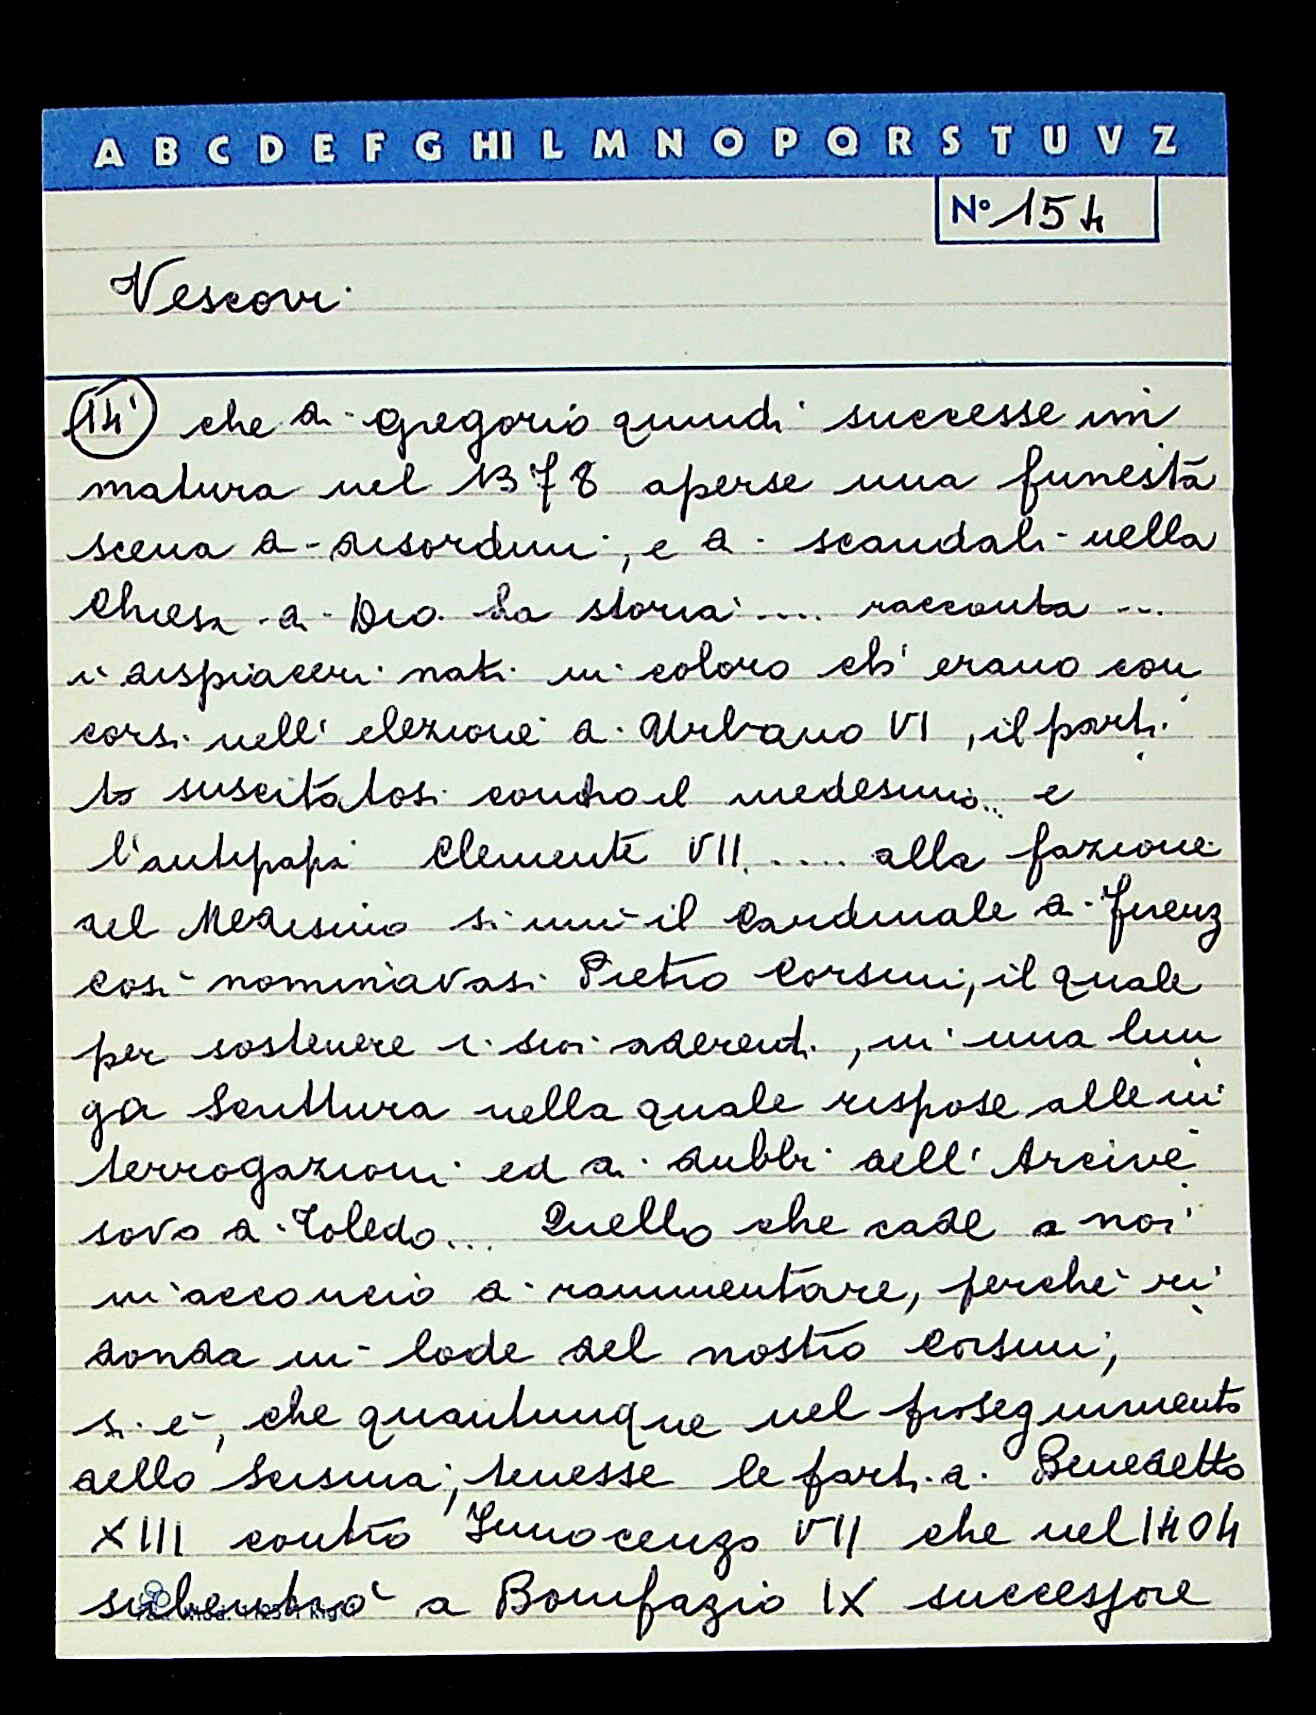 A B C D E F G HI L M N O P Q R S T U V Z
N° 154
Vescovi
14 che a Gregorio quindi successe im
matura nel 1378 aperse una funesta
scena di disordini, e di scandali nella
Chiesa di Dio. La storia .... racconta ...
i dispiaceri nati in coloro ch' erano con
corsi nell' elezione di Urbano VI, il parti
to suscitatosi contro il medesimo... e
l'antipapa Clemente VII .... alla fazione
del Medesimo si unì il Cardinale di Firenz
così nominavasi Pietro Corsini, il quale
per sostenere i suoi aderenti, in una lun
ga Scrittura nella quale rispose alle in
terrogazioni ed ai dubbi dell' Arcive
sovo di Toledo... Quello che cade a noi
in acconcio di rammentare, perchè ri
donda in lode del nostro Corsini,
si è, che quantunque nel proseguimento
dello Scisma, tenesse le parti di Benedetto
XIII contro Innocenzo VII che nel 1404
subentrò a Bonifazio IX successore